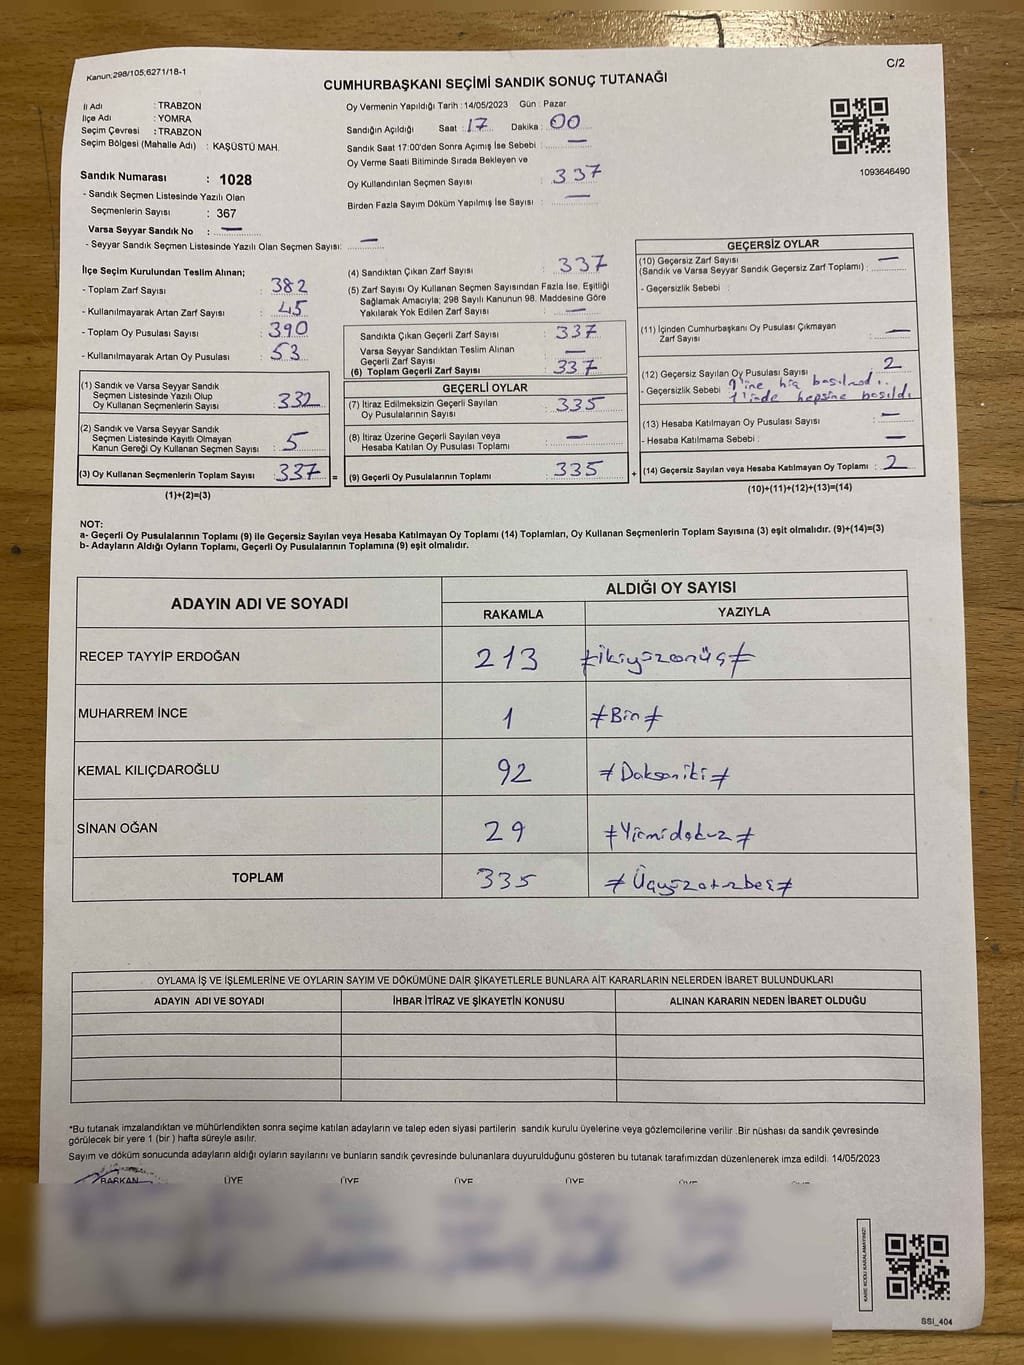 Kanun;298/105;6271/18-1
C/2
CUMHURBAŞKANI SEÇİMİ SANDIK SONUÇ TUTANAĞI
İl Adı : TRABZON
İlçe Adı : YOMRA
Seçim Çevresi : TRABZON
Seçim Bölgesi (Mahalle Adı) : KAŞÜSTÜ MAH.
Sandık Numarası : 1028
- Sandık Seçmen Listesinde Yazılı Olan
Seçmenlerin Sayısı : 367
Varsa Seyyar Sandık No : —
- Seyyar Sandık Seçmen Listesinde Yazılı Olan Seçmen Sayısı: —
Oy Vermenin Yapıldığı Tarih : 14/05/2023 Gün : Pazar
Sandığın Açıldığı Saat : 17 Dakika : 00
Sandık Saat 17:00'den Sonra Açımış İse Sebebi : —
Oy Verme Saati Bitiminde Sırada Bekleyen ve
Oy Kullandırılan Seçmen Sayısı : 337
Birden Fazla Sayım Döküm Yapılmış İse Sayısı : —
1093646490
İlçe Seçim Kurulundan Teslim Alınan;
- Toplam Zarf Sayısı : 382
- Kullanılmayarak Artan Zarf Sayısı : 45
- Toplam Oy Pusulası Sayısı : 390
- Kullanılmayarak Artan Oy Pusulası : 53
(1) Sandık ve Varsa Seyyar Sandık
Seçmen Listesinde Yazılı Olup
Oy Kullanan Seçmenlerin Sayısı : 332
(2) Sandık ve Varsa Seyyar Sandık
Seçmen Listesinde Kayıtlı Olmayan
Kanun Gereği Oy Kullanan Seçmen Sayısı : 5
(3) Oy Kullanan Seçmenlerin Toplam Sayısı : 337 =
(1)+(2)=(3)
(4) Sandıktan Çıkan Zarf Sayısı : 337
(5) Zarf Sayısı Oy Kullanan Seçmen Sayısından Fazla İse, Eşitliği
Sağlamak Amacıyla; 298 Sayılı Kanunun 98. Maddesine Göre
Yakılarak Yok Edilen Zarf Sayısı : —
Sandıkta Çıkan Geçerli Zarf Sayısı : 337
Varsa Seyyar Sandıktan Teslim Alınan
Geçerli Zarf Sayısı : —
(6) Toplam Geçerli Zarf Sayısı : 337
GEÇERLİ OYLAR
(7) İtiraz Edilmeksizin Geçerli Sayılan
Oy Pusulalarının Sayısı : 335
(8) İtiraz Üzerine Geçerli Sayılan veya
Hesaba Katılan Oy Pusulası Toplamı : —
(9) Geçerli Oy Pusulalarının Toplamı : 335 +
GEÇERSİZ OYLAR
(10) Geçersiz Zarf Sayısı —
(Sandık ve Varsa Seyyar Sandık Geçersiz Zarf Toplamı) :
- Geçersizlik Sebebi :
(11) İçinden Cumhurbaşkanı Oy Pusulası Çıkmayan
Zarf Sayısı : —
(12) Geçersiz Sayılan Oy Pusulası Sayısı : 2
- Geçersizlik Sebebi 1'ine hiç basılmadı.
1'inde hepsine basıldı
(13) Hesaba Katılmayan Oy Pusulası Sayısı : —
- Hesaba Katılmama Sebebi : —
(14) Geçersiz Sayılan veya Hesaba Katılmayan Oy Toplamı : 2
(10)+(11)+(12)+(13)=(14)
NOT:
a- Geçerli Oy Pusulalarının Toplamı (9) ile Geçersiz Sayılan veya Hesaba Katılmayan Oy Toplamı (14) Toplamları, Oy Kullanan Seçmenlerin Toplam Sayısına (3) eşit olmalıdır. (9)+(14)=(3)
b- Adayların Aldığı Oyların Toplamı, Geçerli Oy Pusulalarının Toplamına (9) eşit olmalıdır.
ADAYIN ADI VE SOYADI
ALDIĞI OY SAYISI
RAKAMLA YAZIYLA
RECEP TAYYİP ERDOĞAN 213 ≠ikiyüzonüç≠
MUHARREM İNCE 1 ≠Bir≠
KEMAL KILIÇDAROĞLU 92 ≠Doksaniki≠
SİNAN OĞAN 29 ≠Yirmidokuz≠
TOPLAM 335 ≠Üçyüzotuzbeş≠
OYLAMA İŞ VE İŞLEMLERİNE VE OYLARIN SAYIM VE DÖKÜMÜNE DAİR ŞİKAYETLERLE BUNLARA AİT KARARLARIN NELERDEN İBARET BULUNDUKLARI
ADAYIN ADI VE SOYADI İHBAR İTİRAZ VE ŞİKAYETİN KONUSU ALINAN KARARIN NEDEN İBARET OLDUĞU
*Bu tutanak imzalandıktan ve mühürlendikten sonra seçime katılan adayların ve talep eden siyasi partilerin sandık kurulu üyelerine veya gözlemcilerine verilir .Bir nüshası da sandık çevresinde
görülecek bir yere 1 (bir ) hafta süreyle asılır.
Sayım ve döküm sonucunda adayların aldığı oyların sayılarını ve bunların sandık çevresinde bulunanlara duyurulduğunu gösteren bu tutanak tarafımızdan düzenlenerek imza edildi. 14/05/2023
BAŞKAN ÜYE ÜYE ÜYE ÜYE
KARE KODU KARALAMAYINIZ!
SSI_404